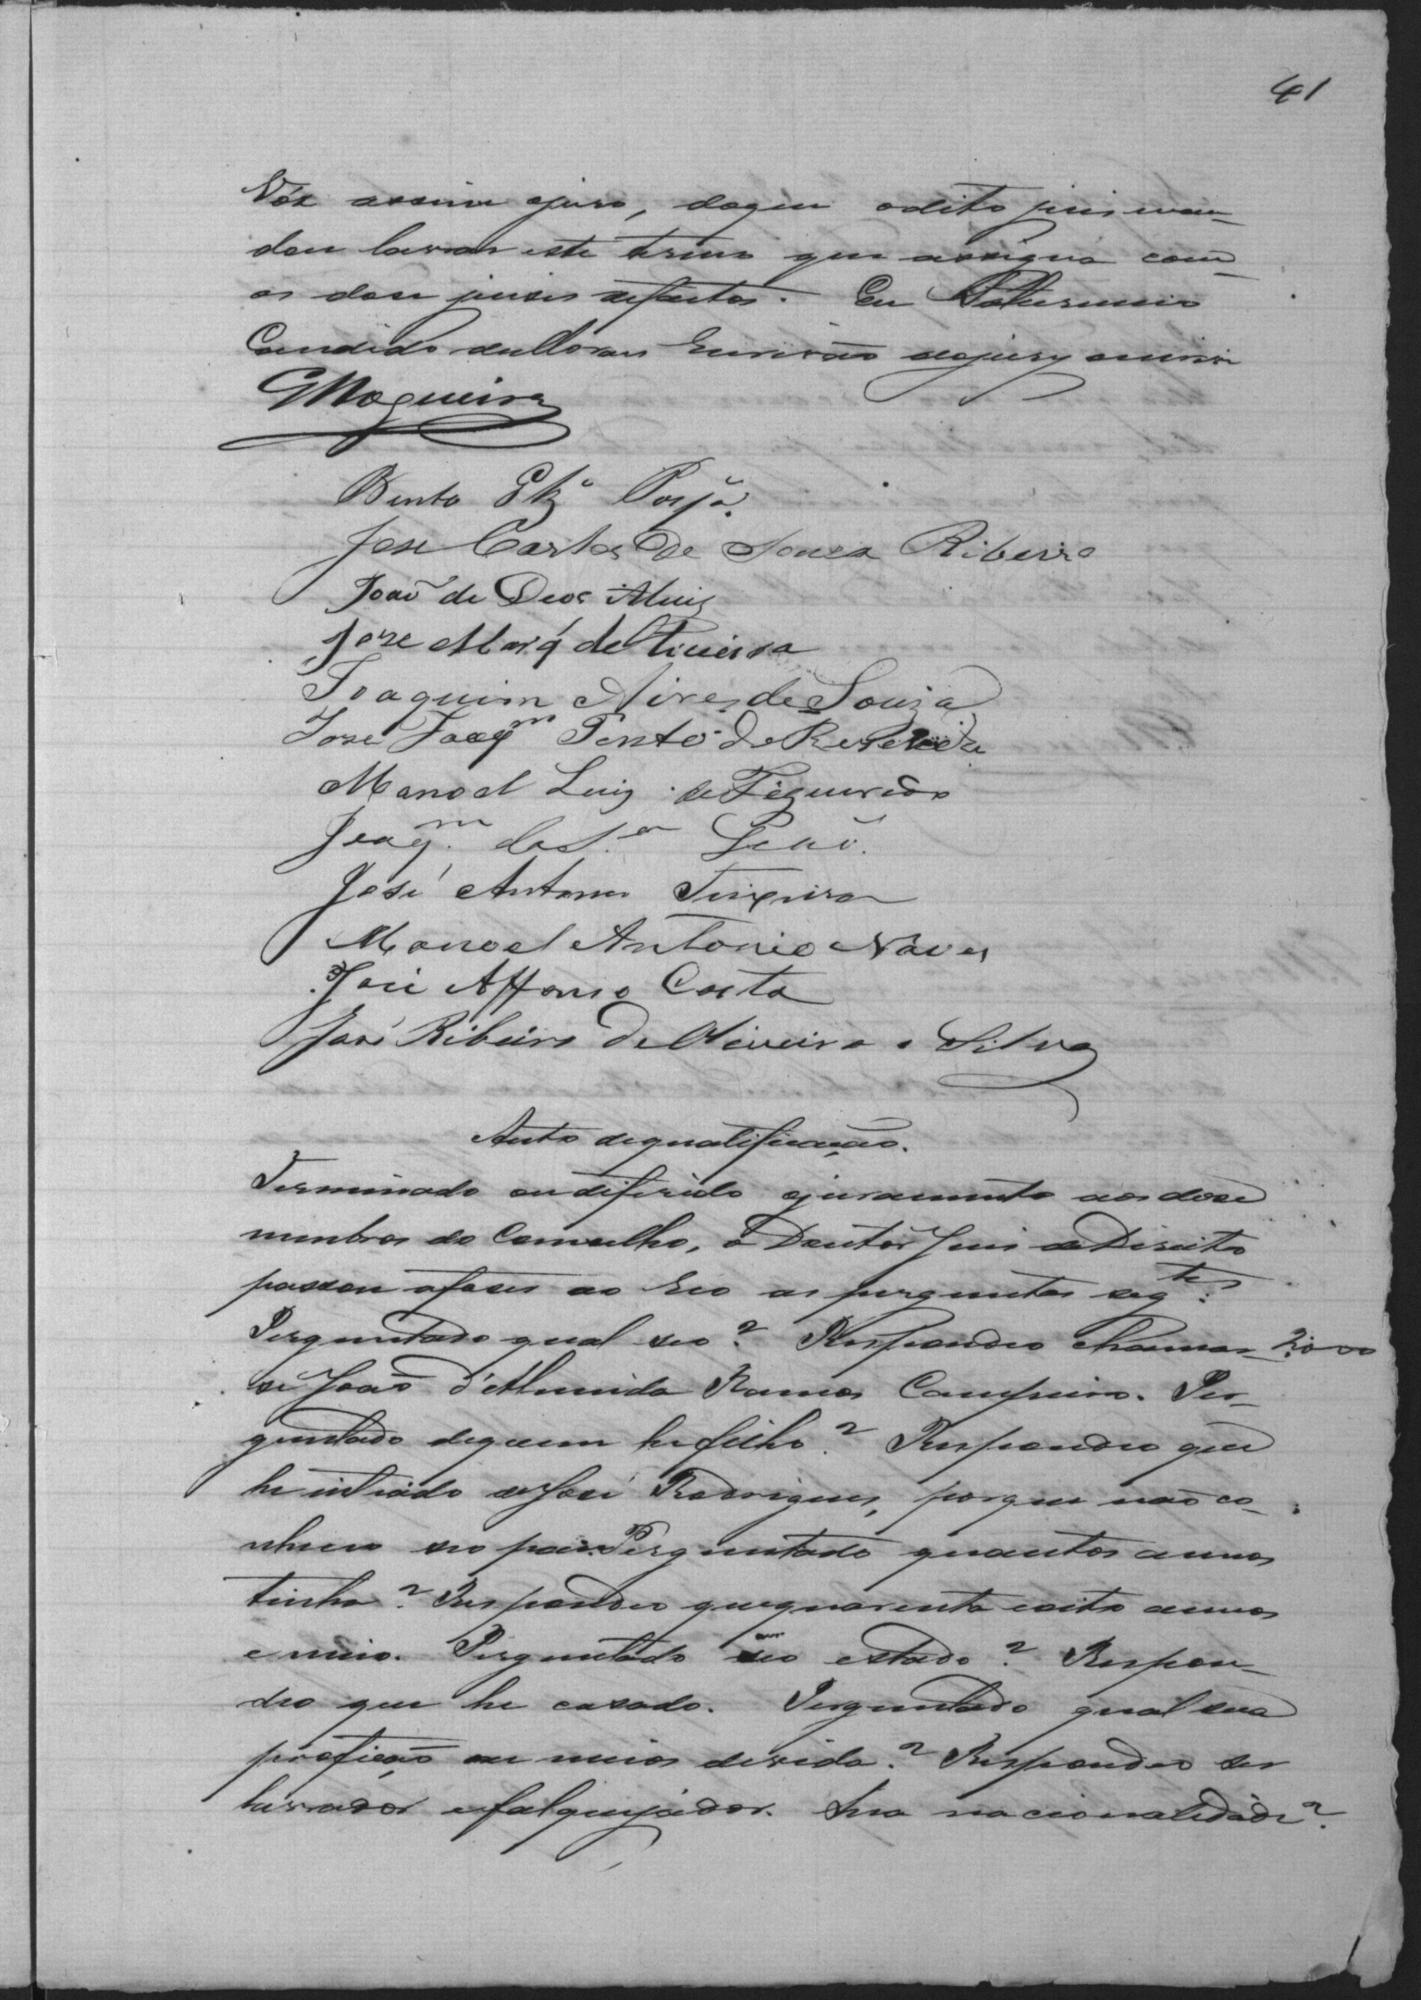 41
Vóz assim o juro, do que o dito juis man-
dou lavrar este termo que assigna com
os dose juises de facto. Eu
Candido de Moraes Escrivão do jury escrivi
GNogueira
Bento
Jose Carlos de Souza Ribeiro
João de Deos Muiz
Jose Marq de
Joaquim Aires de Souza
Jose Joaqm Pinto de Rezende
Manoel Luiz de Figueredo
Joaqm da Sa Leão.
José Antonio Teixeira
Manoel Antonio Naves
José Affonso Costa
José Ribeiro de Oliveira e Silva
Auto de qualificação.
Terminado ou diferido o juramento aos dose
membros do Conselho, o Doutor Juis de Direito
passou afaser ao Reo as perguntas segtes:
Perguntado qual seo? Respondeo chamar-
se João d'Almeida Ramos Campeiro. Per-
guntado de quem he filho? Respondeo que
he intiado de José Rodrigues, porque não co-
nheceo seo pai. Perguntado quantos annos
tinha? Respondeo que quarenta e oito annos
e meio. Perguntado seo estado? Respon-
deo que he casado. Perguntado qual sua
profição ou meios de vida? Respondeo ser
ferrador e falquejador. Sua nacionalidade?